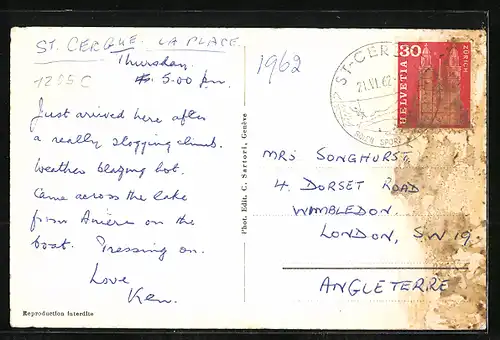 ST. CERGUE. LA PLACE
1225 C
Thursday.
5.00 pm.
Just arrived here after
a really slogging climb.
Weather blazing hot.
Came across the lake
from Anière on the
boat. Pressing on.
Love
Ken.
Reproduction interdite
Phot. Edit. C. Sartori, Genève
1962
ST-CER
21.VI.62
SPORT
HELVETIA 30
ZÜRICH
MRS SONGHURST.
4. DORSET ROAD
WIMBLEDON.
LONDON, S.W 19.
ANGLETERRE